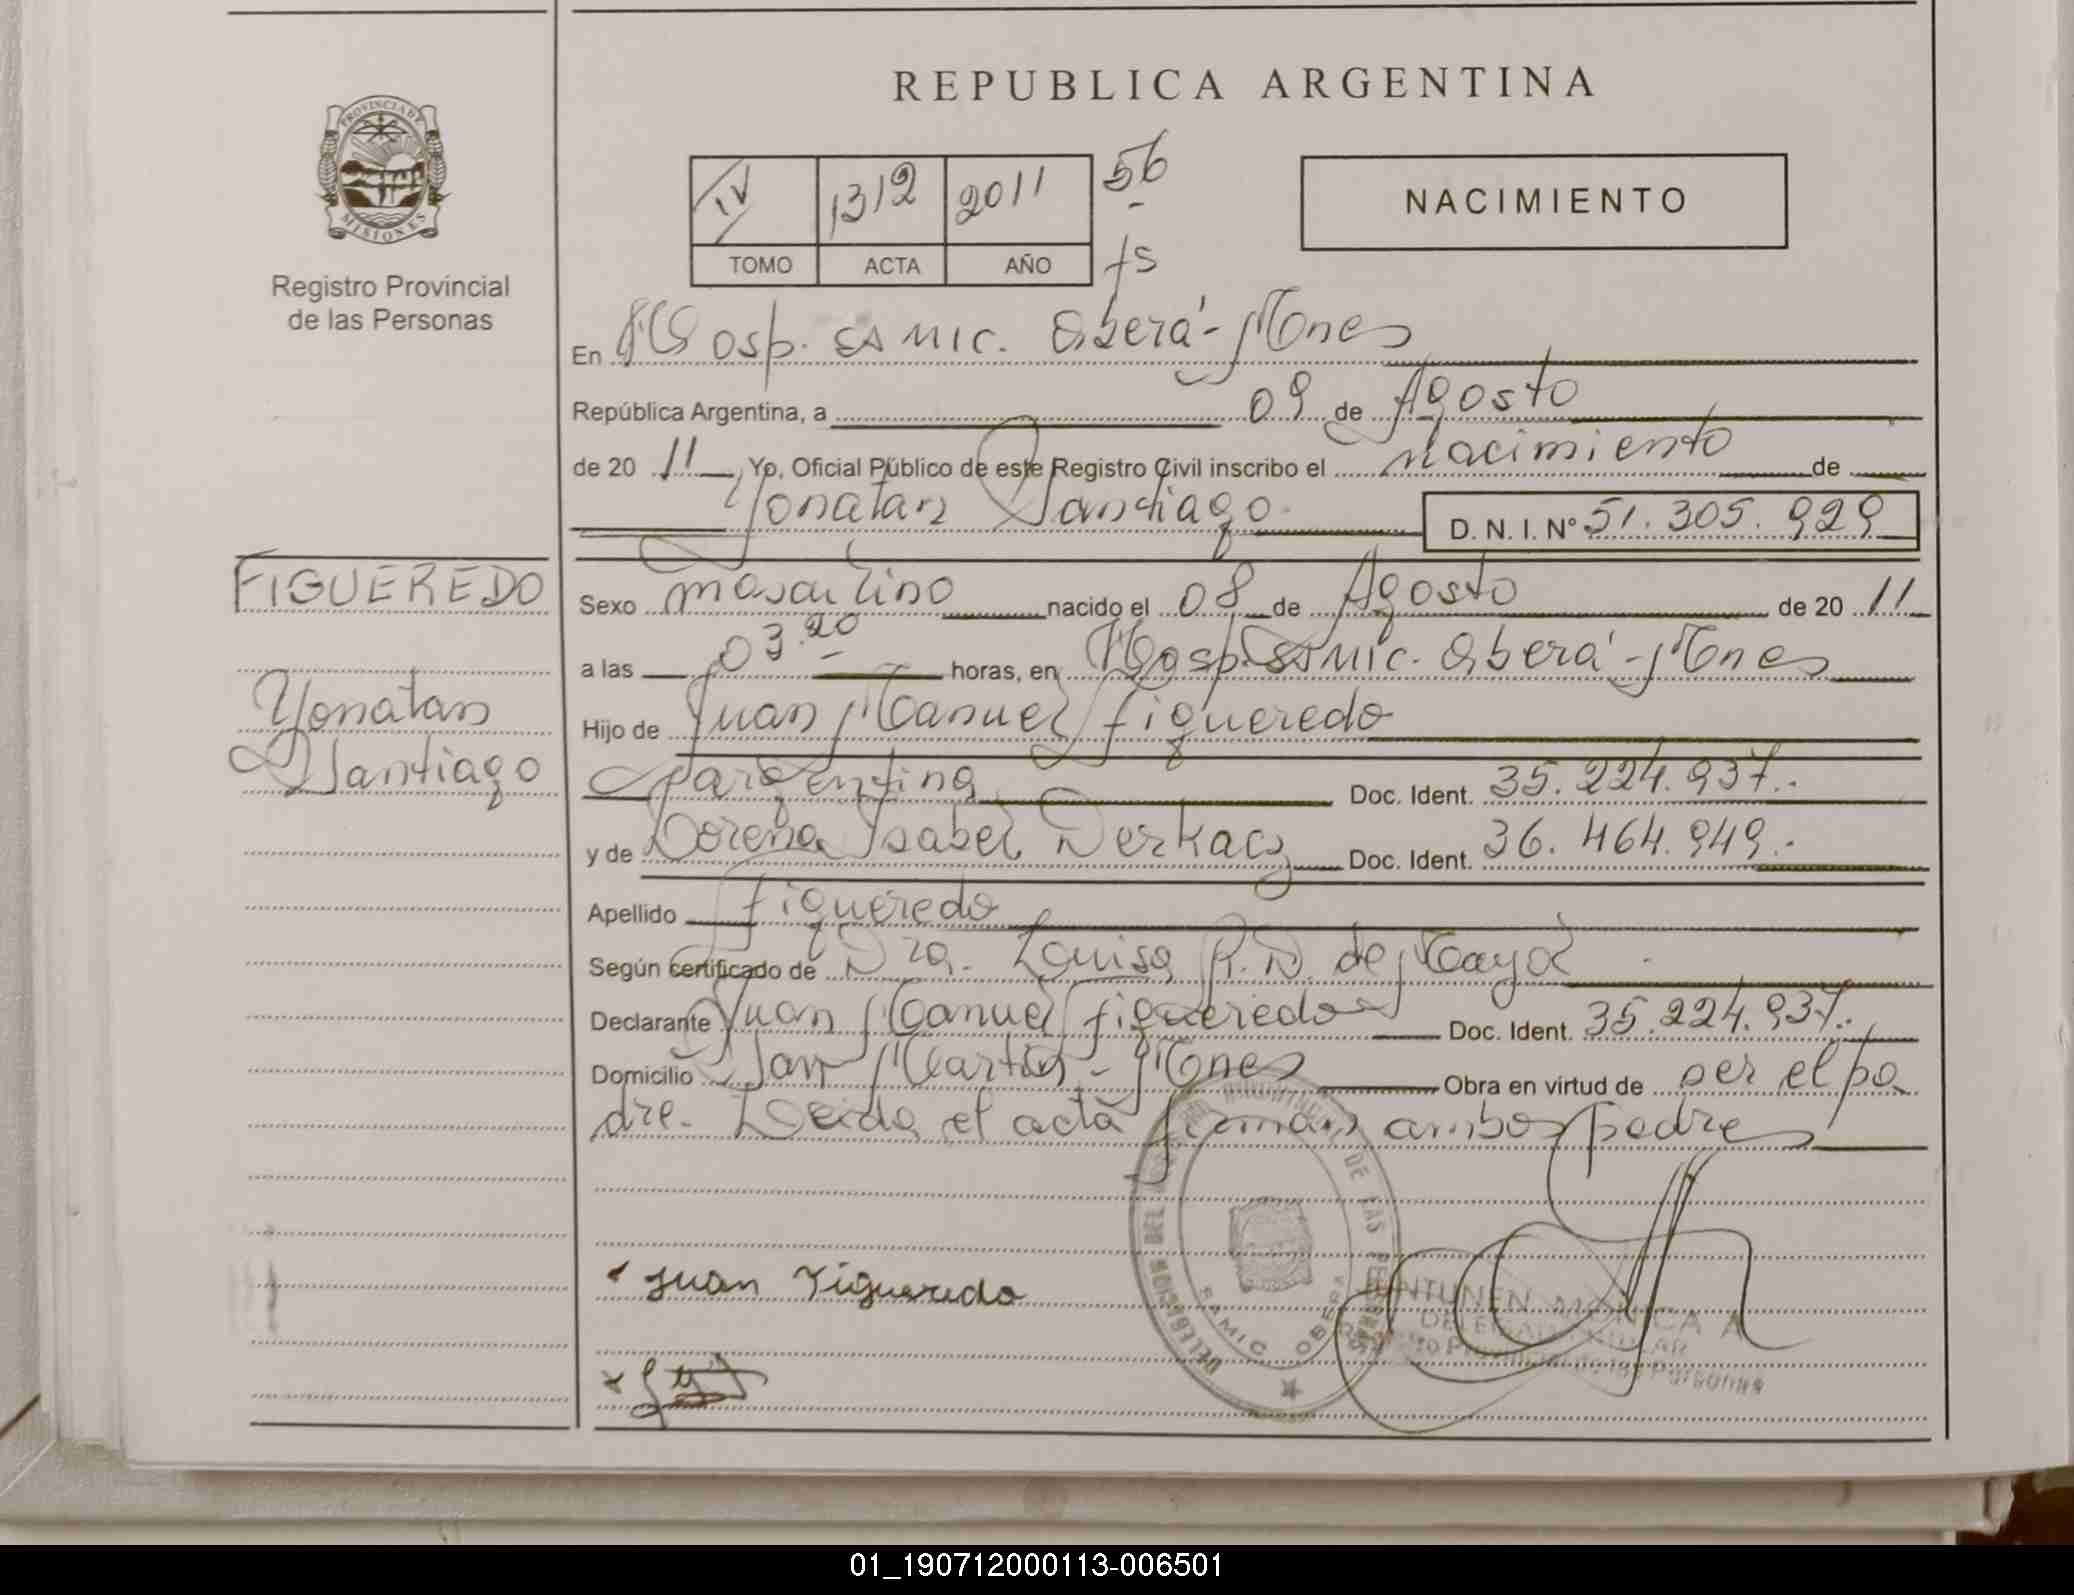 REPUBLICA ARGENTINA
PROVINCIA DE
MISIONES
Registro Provincial
de las Personas
IV 1312 2011 56
TOMO ACTA AÑO fs
NACIMIENTO
En Hosp. SAMIC. Oberá - Mnes
República Argentina, a 09 de Agosto
de 20 11, Yo, Oficial Público de este Registro Civil inscribo el nacimiento de
Yonatan Santiago. D. N. I. Nº 51.305.929
FIGUEREDO
Yonatan
Santiago
Sexo masculino nacido el 08 de Agosto de 20 11
a las 03.20 horas, en Hosp. SAMIC. Oberá - Mnes
Hijo de Juan Manuel Figueredo
Argentina Doc. Ident. 35.224.937.-
y de Lorena Isabel Derkacz Doc. Ident. 36.464.949.-
Apellido Figueredo
Según certificado de Dra. Louisa R. D. de
Declarante Juan Manuel Figueredo Doc. Ident. 35.224.937.-
Domicilio San Martín - Mnes Obra en virtud de ser el pa
dre. Leida el acta firman ambos padres
Juan Figueredo
DE LAS
SAMIC OBERA
MONICA A
Registro Provincial de las Personas
01_190712000113-006501